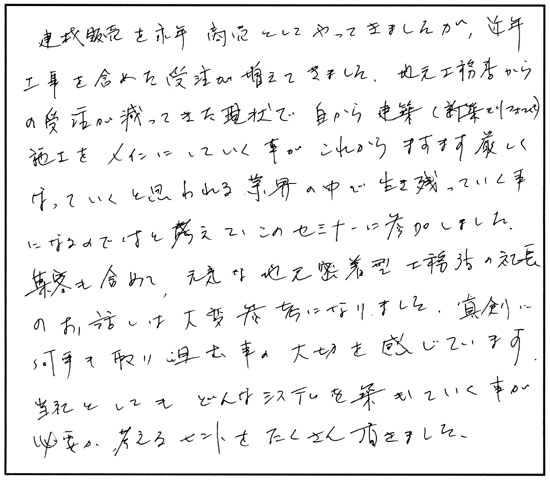 建材販売を永年 商売としてやってきましたが、近年
工事を含めた受注が増えてきました。地元工務店から
の受注が減ってきた現状で自から建築(新築とリフォーム)
施工をメインにしていく事がこれからますます厳しく
なっていくと思われる業界の中で生き残っていく事
になるのではと考えて、このセミナーに参加しました。
集客も含めて、元気な地元密着型工務店の社長
のお話しは大変参考になりました。真剣に
何事も取り組む事の大切を感じています。
当社としても どんなシステムを築いていく事が
必要か、考えるヒントをたくさん頂きました。